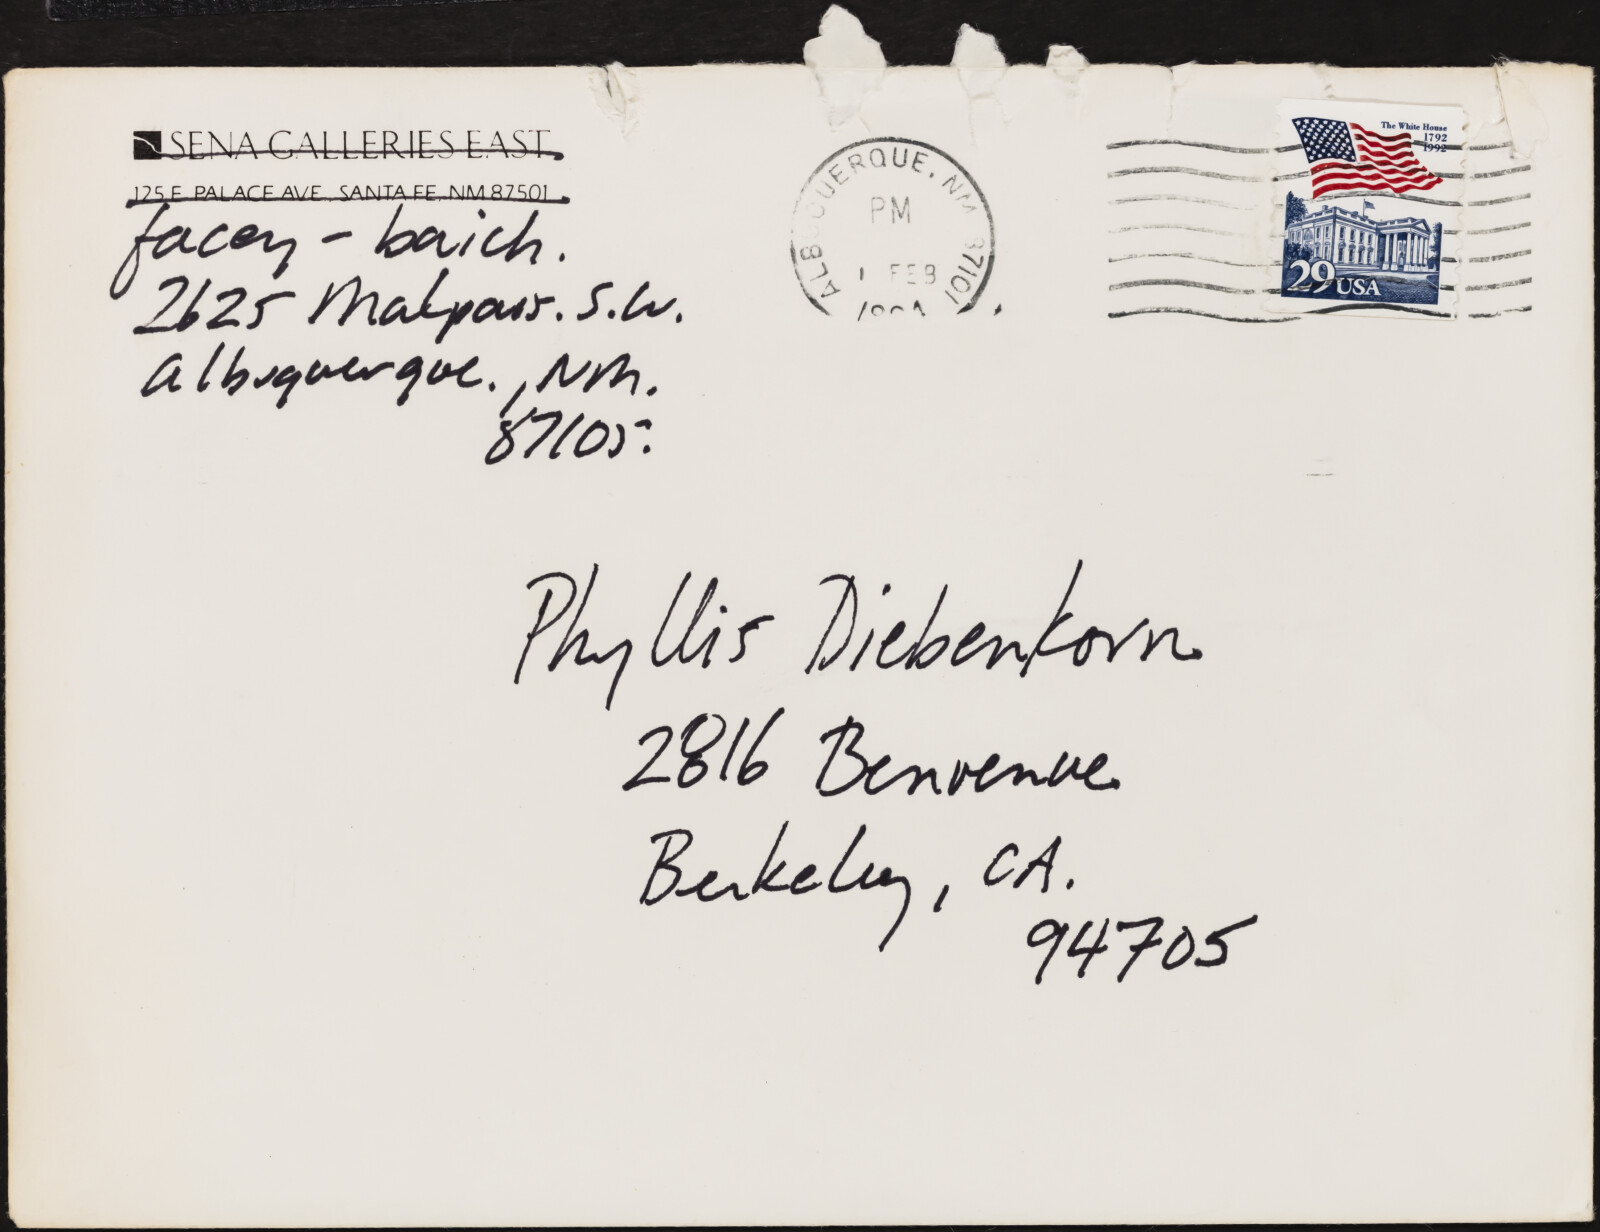 SENA GALLERIES EAST
125 E. PALACE AVE. SANTA FE, NM 87501
facey - baich.
2625 Malpais. S.W.
Albuquerque., NM.
87105.
ALBUQUERQUE, NM 87101
PM
1 FEB
The White House
1792
1992
29 USA
Phyllis Diebenkorn
2816 Benvenue
Berkeley, CA.
94705